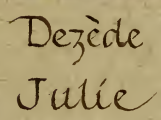 Dezède
Julie